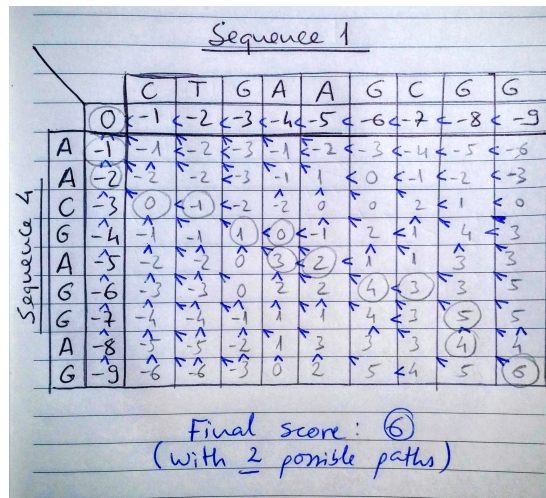 Sequence 1
C T G A A G C G G
0 -1 -2 -3 -4 -5 -6 -7 -8 -9
A -1 -1 -2 -3 -1 -2 -3 -4 -5 -6
A -2 -2 -2 -3 -1 1 0 -1 -2 -3
C -3 0 -1 -2 -2 0 0 2 1 0
G -4 -1 -1 1 0 -1 2 1 4 3
A -5 -2 -2 0 3 2 1 1 3 3
G -6 -3 -3 0 2 2 4 3 3 5
G -7 -4 -4 -1 1 1 4 3 5 5
A -8 -5 -5 -2 1 3 3 3 4 4
G -9 -6 -6 -3 0 2 5 4 5 6
Sequence 4
Final score: 6
(with 2 possible paths)